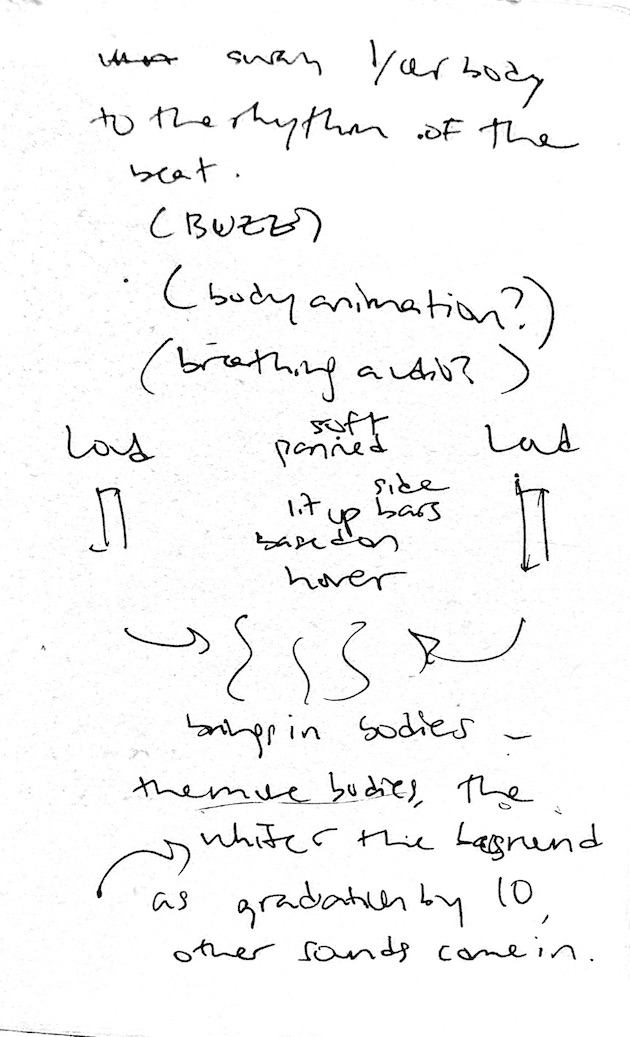 sway your body
to the rhythm of the
beat.
(BUZZ)
(body animation?)
(breathing audio?)
Loud soft panned Loud
lit up side bars
based on
hover
brings in bodies –
the more bodies, the
whiter the
as gradation by 10,
other sounds come in.